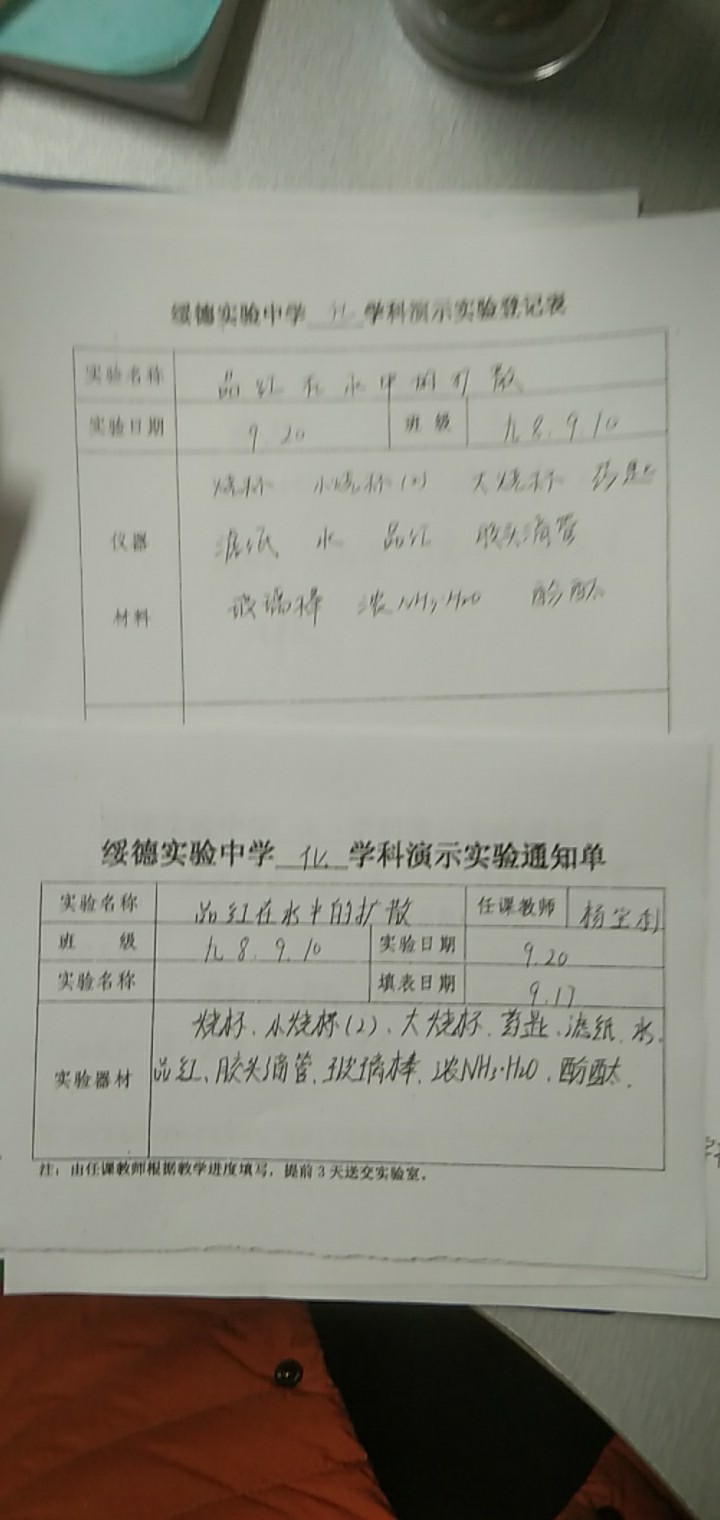 绥德实验中学 化 学科演示实验登记表
实验名称 品红在水中的扩散
实验日期 9.20 班级 九 8.9.10
烧杯 小烧杯(2) 大烧杯 药匙
仪器 滤纸 水 品红 胶头滴管
材料 玻璃棒 浓NH3·H2O 酚酞
绥德实验中学 化 学科演示实验通知单
实验名称 品红在水中的扩散 任课教师 杨宝
班 级 九 8.9.10 实验日期 9.20
实验名称 填表日期 9.17
烧杯、小烧杯(2)、大烧杯、药匙、滤纸、水、
实验器材 品红、胶头滴管、玻璃棒、浓NH3·H2O、酚酞.
注：由任课教师根据教学进度填写，提前3天送交实验室。